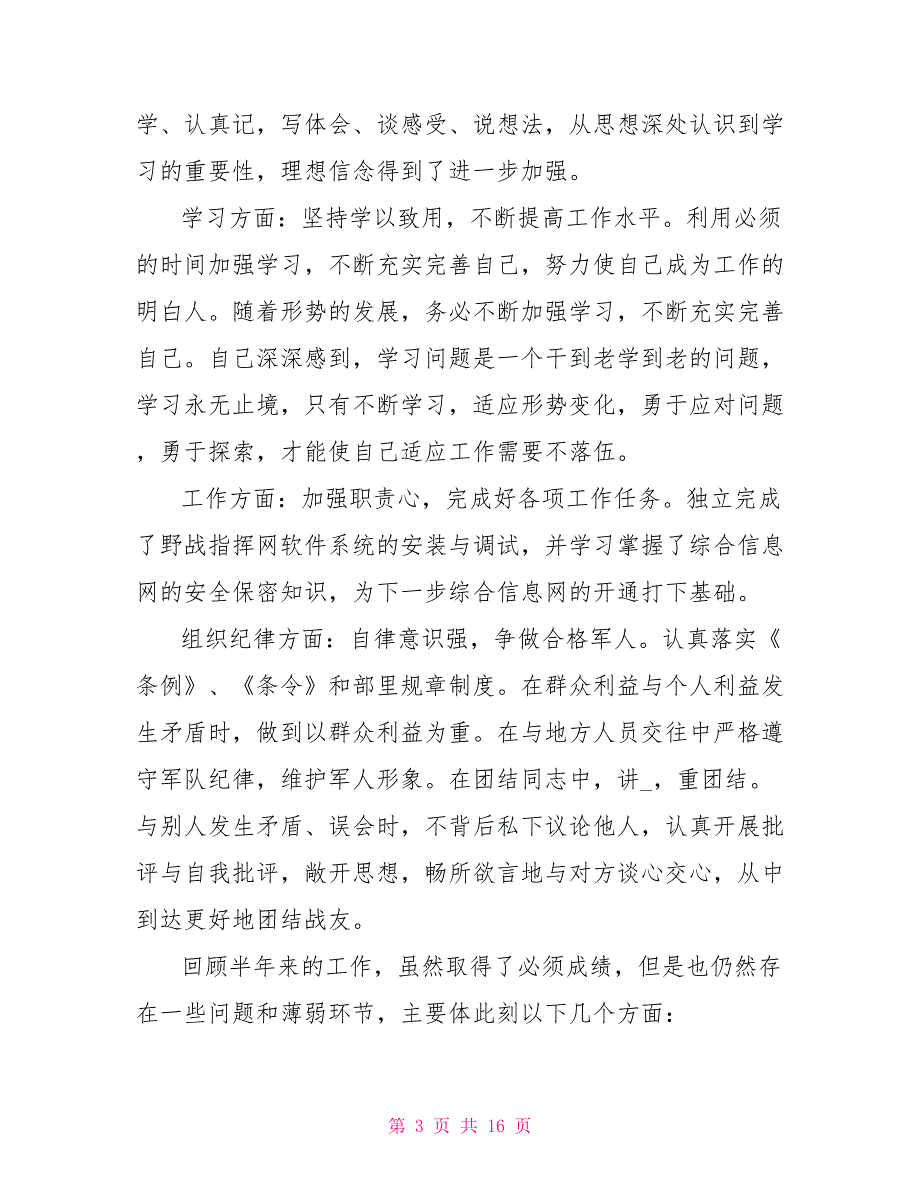 学、认真记，写体会、谈感受、说想法，从思想深处认识到学
习的重要性，理想信念得到了进一步加强。
学习方面：坚持学以致用，不断提高工作水平。利用必须
的时间加强学习，不断充实完善自己，努力使自己成为工作的
明白人。随着形势的发展，务必不断加强学习，不断充实完善
自己。自己深深感到，学习问题是一个干到老学到老的问题，
学习永无止境，只有不断学习，适应形势变化，勇于应对问题
，勇于探索，才能使自己适应工作需要不落伍。
工作方面：加强职责心，完成好各项工作任务。独立完成
了野战指挥网软件系统的安装与调试，并学习掌握了综合信息
网的安全保密知识，为下一步综合信息网的开通打下基础。
组织纪律方面：自律意识强，争做合格军人。认真落实《
条例》、《条令》和部里规章制度。在群众利益与个人利益发
生矛盾时，做到以群众利益为重。在与地方人员交往中严格遵
守军队纪律，维护军人形象。在团结同志中，讲_，重团结。
与别人发生矛盾、误会时，不背后私下议论他人，认真开展批
评与自我批评，敞开思想，畅所欲言地与对方谈心交心，从中
到达更好地团结战友。
回顾半年来的工作，虽然取得了必须成绩，但是也仍然存
在一些问题和薄弱环节，主要体此刻以下几个方面：
第 3 页 共 16 页